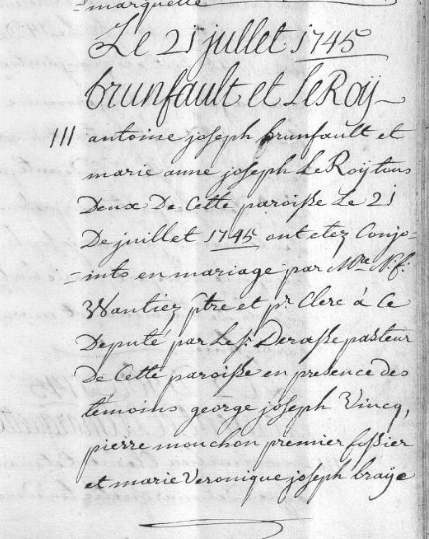 marquette
Le 21 juillet 1745
brunfault et LeRoÿ
111 antoine joseph brunfault et
marie anne joseph LeRoÿ tous
Deux De Cette paroisse Le 21
De juillet 1745 ont etez Conjo=
=ints en mariage par Mre N. f.
Wantiez ptre et pr Clerc à Ce
Deputé par Le Sr Derasse pasteur
De Cette paroisse en presence des
temoins george joseph Vincq,
pierre mouchon premier fossier
et marie Veronique joseph braÿe